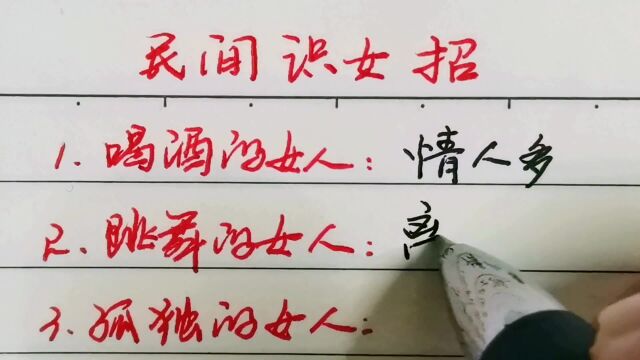 民间识女招
1.喝酒的女人：情人多
2.跳舞的女人：
3.孤独的女人：